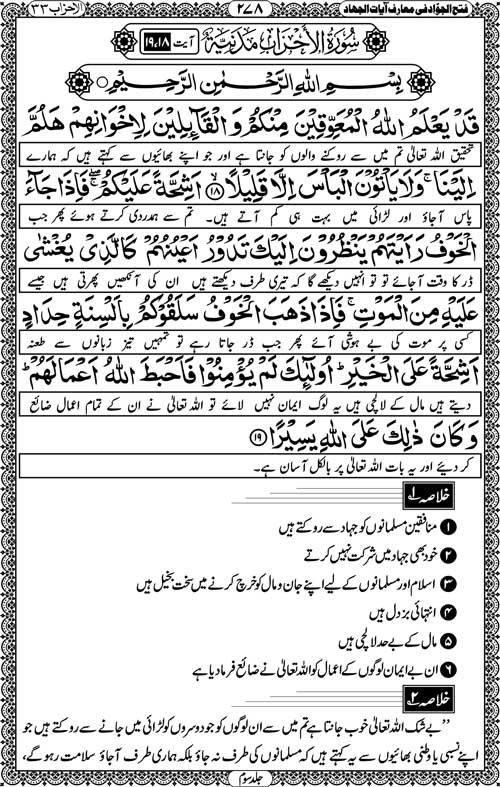 فتح الجوّاد فی معارف آیات الجہاد ۲۷۸ الاحزاب ۳۳
سُوْرَةُ الْاَحْزَابِ مَدَنِيَّةٌ آیت ۱۹،۱۸
بِسْمِ اللهِ الرَّحْمٰنِ الرَّحِيْمِ
قَدْ يَعْلَمُ اللهُ الْمُعَوِّقِيْنَ مِنْكُمْ وَ الْقَآئِلِيْنَ لِاِخْوَانِهِمْ هَلُمَّ
تحقیق اللہ تعالیٰ تم میں سے روکنے والوں کو جانتا ہے اور جو اپنے بھائیوں سے کہتے ہیں کہ ہمارے
اِلَيْنَا ۚ وَلَا يَاْتُوْنَ الْبَاْسَ اِلَّا قَلِيْلًا ۱۸ اَشِحَّةً عَلَيْكُمْ ۖ فَاِذَا جَآءَ
پاس آجاؤ اور لڑائی میں بہت ہی کم آتے ہیں۔ تم سے ہمدردی کرتے ہوئے پھر جب
الْخَوْفُ رَاَيْتَهُمْ يَنْظُرُوْنَ اِلَيْكَ تَدُوْرُ اَعْيُنُهُمْ كَالَّذِيْ يُغْشٰى
ڈر کا وقت آجائے تو تو انہیں دیکھے گا کہ تیری طرف دیکھتے ہیں ان کی آنکھیں پھرتی ہیں جیسے
عَلَيْهِ مِنَ الْمَوْتِ ۚ فَاِذَا ذَهَبَ الْخَوْفُ سَلَقُوْكُمْ بِاَلْسِنَةٍ حِدَادٍ
کسی پر موت کی بے ہوشی آئے پھر جب ڈر جاتا رہے تو تمہیں تیز زبانوں سے طعنہ
اَشِحَّةً عَلَى الْخَيْرِ ؕ اُولٰٓئِكَ لَمْ يُؤْمِنُوْا فَاَحْبَطَ اللهُ اَعْمَالَهُمْ ؕ
دیتے ہیں مال کے لالچی ہیں یہ لوگ ایمان نہیں لائے تو اللہ تعالیٰ نے ان کے تمام اعمال ضائع
وَ كَانَ ذٰلِكَ عَلَى اللهِ يَسِيْرًا ۱۹
کر دیئے اور یہ بات اللہ تعالیٰ پر بالکل آسان ہے۔
خلاصہ ۱
۱ منافقین مسلمانوں کو جہاد سے روکتے ہیں
۲ خود بھی جہاد میں شرکت نہیں کرتے
۳ اسلام اور مسلمانوں کے لیے اپنے جان و مال کو خرچ کرنے میں سخت بخیل ہیں
۴ انتہائی بزدل ہیں
۵ مال کے بے حد لالچی ہیں
۶ ان بے ایمان لوگوں کے اعمال کو اللہ تعالیٰ نے ضائع فرمادیا ہے
خلاصہ ۲
”بے شک اللہ تعالیٰ خوب جانتا ہے تم میں سے ان لوگوں کو جو دوسروں کو لڑائی میں جانے سے روکتے ہیں جو
اپنے نسبی یا وطنی بھائیوں سے یہ کہتے ہیں کہ مسلمانوں کی طرف نہ جاؤ بلکہ ہماری طرف آجاؤ سلامت رہو گے،
جلد سوم